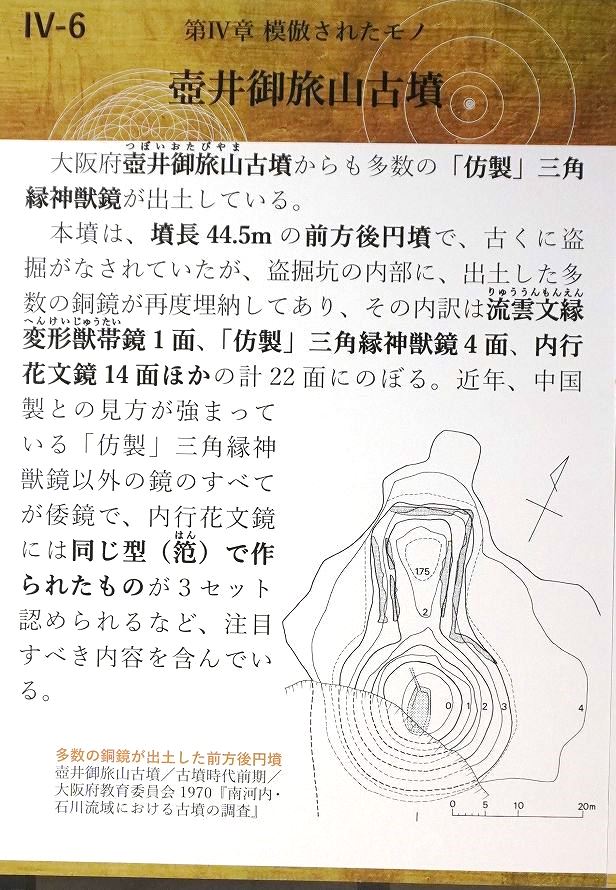 IV-6
第IV章 模倣されたモノ
壺井御旅山古墳
つぼいおたびやま
大阪府壺井御旅山古墳からも多数の「仿製」三角
縁神獣鏡が出土している。
本墳は、墳長 44.5m の前方後円墳で、古くに盗
掘がなされていたが、盗掘坑の内部に、出土した多
りゅううんもんえん
数の銅鏡が再度埋納してあり、その内訳は流雲文縁
へんけいじゅうたい
変形獣帯鏡 1 面、「仿製」三角縁神獣鏡 4 面、内行
花文鏡 14 面ほかの計 22 面にのぼる。近年、中国
製との見方が強まって
いる「仿製」三角縁神
獣鏡以外の鏡のすべて
が倭鏡で、内行花文鏡
はん
には同じ型（笵）で作
られたものが 3 セット
認められるなど、注目
すべき内容を含んでい
る。
175
2
0 1 2 3 4
0 5 10 20m
多数の銅鏡が出土した前方後円墳
壺井御旅山古墳／古墳時代前期／
大阪府教育委員会 1970『南河内・
石川流域における古墳の調査』